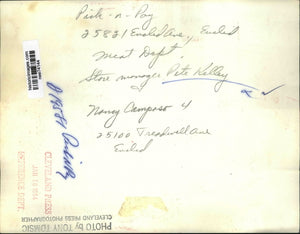 Pick-n-Pay
25821 Euclid Ave, Euclid
Meat Dept
Store manager Pete Kelley
Nancy Campaso 4
25100 Treadwell Ave
Euclid
CLEVELAND PRESS
JAN 19
REFERENCE DEPT.
PHOTO by TONY TOMSIC
CLEVELAND PRESS PHOTOGRAPHER